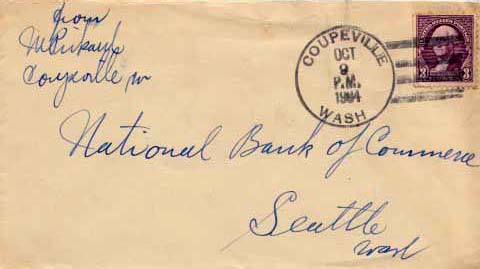 from
Coupeville W
COUPEVILLE
OCT
9
P.M.
WASH
3 3
National Bank of Commerce
Seattle
Wash